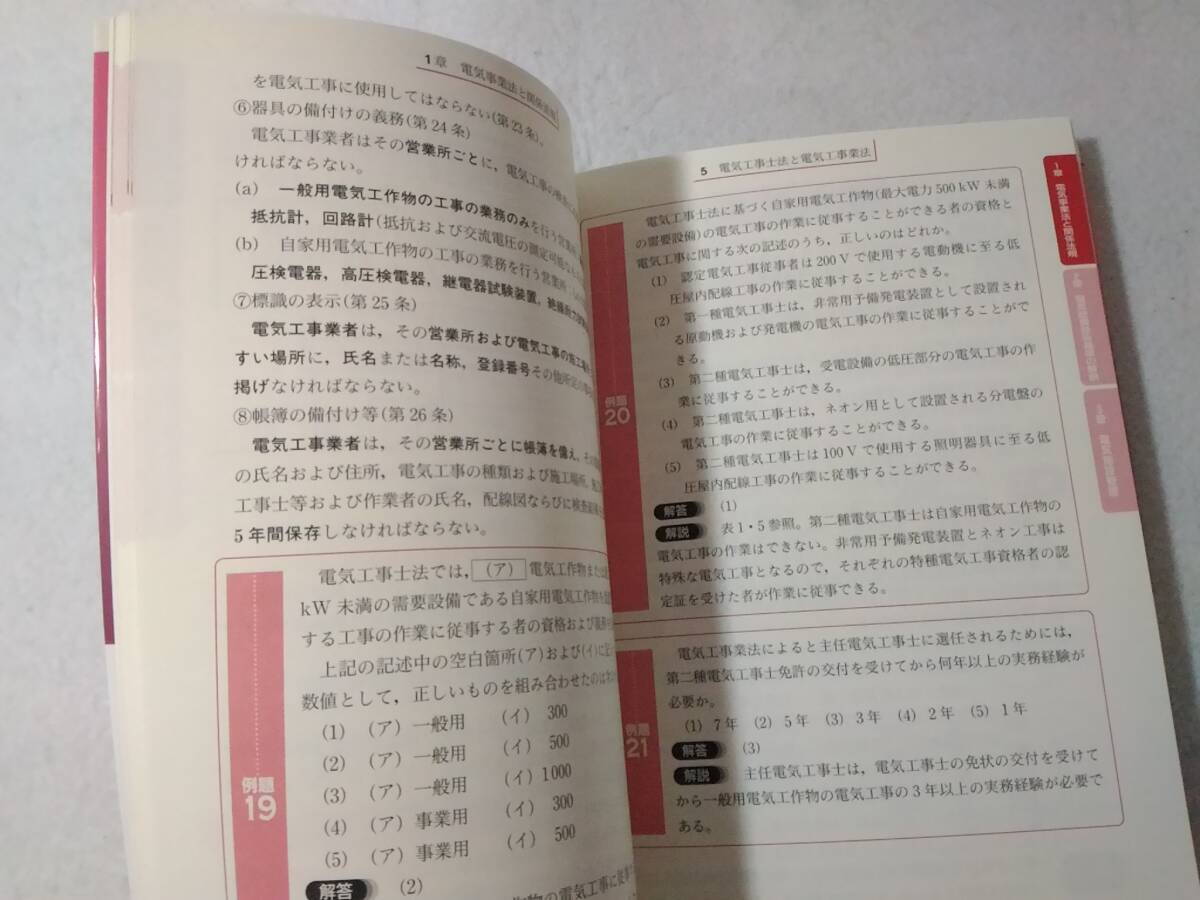 1章 電気事業法と関係法規
を電気工事に使用してはならない(第23条)。
⑥器具の備付けの義務(第24条)
電気工事業者はその営業所ごとに，電気工事の
ければならない。
(a) 一般用電気工作物の工事の業務のみを行う営業所
抵抗計，回路計(抵抗および交流電圧の測定可能なもの
(b) 自家用電気工作物の工事の業務を行う営業所
圧検電器，高圧検電器，継電器試験装置，絶縁耐力試験
⑦標識の表示(第25条)
電気工事業者は，その営業所および電気工事の施工場所
すい場所に，氏名または名称，登録番号その他所定の事
掲げなければならない。
⑧帳簿の備付け等(第26条)
電気工事業者は，その営業所ごとに帳簿を備え，その
の氏名および住所，電気工事の種類および施工場所，施
工事士等および作業者の氏名，配線図ならびに検査結果
5年間保存しなければならない。
例題
19
電気工事士法では，(ア)電気工作物また
kW 未満の需要設備である自家用電気工作物を
する工事の作業に従事する者の資格および
上記の記述中の空白箇所(ア)および(イ)に
数値として，正しいものを組み合わせたのは
(1) (ア) 一般用 (イ) 300
(2) (ア) 一般用 (イ) 500
(3) (ア) 一般用 (イ) 1000
(4) (ア) 事業用 (イ) 300
(5) (ア) 事業用 (イ) 500
解答 (2)
作物の電気工事に従
5 電気工事士法と電気工事業法
例題
20
電気工事士法に基づく自家用電気工作物(最大電力 500 kW 未満
の需要設備)の電気工事の作業に従事することができる者の資格と
電気工事に関する次の記述のうち，正しいのはどれか。
(1) 認定電気工事従事者は 200 V で使用する電動機に至る低
圧屋内配線工事の作業に従事することができる。
(2) 第一種電気工事士は，非常用予備発電装置として設置され
る原動機および発電機の電気工事の作業に従事することがで
きる。
(3) 第二種電気工事士は，受電設備の低圧部分の電気工事の作
業に従事することができる。
(4) 第二種電気工事士は，ネオン用として設置される分電盤の
電気工事の作業に従事することができる。
(5) 第二種電気工事士は 100 V で使用する照明器具に至る低
圧屋内配線工事の作業に従事することができる。
解答 (1)
解説 表1・5参照。第二種電気工事士は自家用電気工作物の
電気工事の作業はできない。非常用予備発電装置とネオン工事は
特殊な電気工事となるので，それぞれの特種電気工事資格者の認
定証を受けた者が作業に従事できる。
例題
21
電気工事業法によると主任電気工事士に選任されるためには，
第二種電気工事士免許の交付を受けてから何年以上の実務経験が
必要か。
(1) 7年 (2) 5年 (3) 3年 (4) 2年 (5) 1年
解答 (3)
解説 主任電気工事士は，電気工事士の免状の交付を受けて
から一般用電気工作物の電気工事の3年以上の実務経験が必要で
ある。
1章 電気事業法と関係法規
3章 電気施設管理